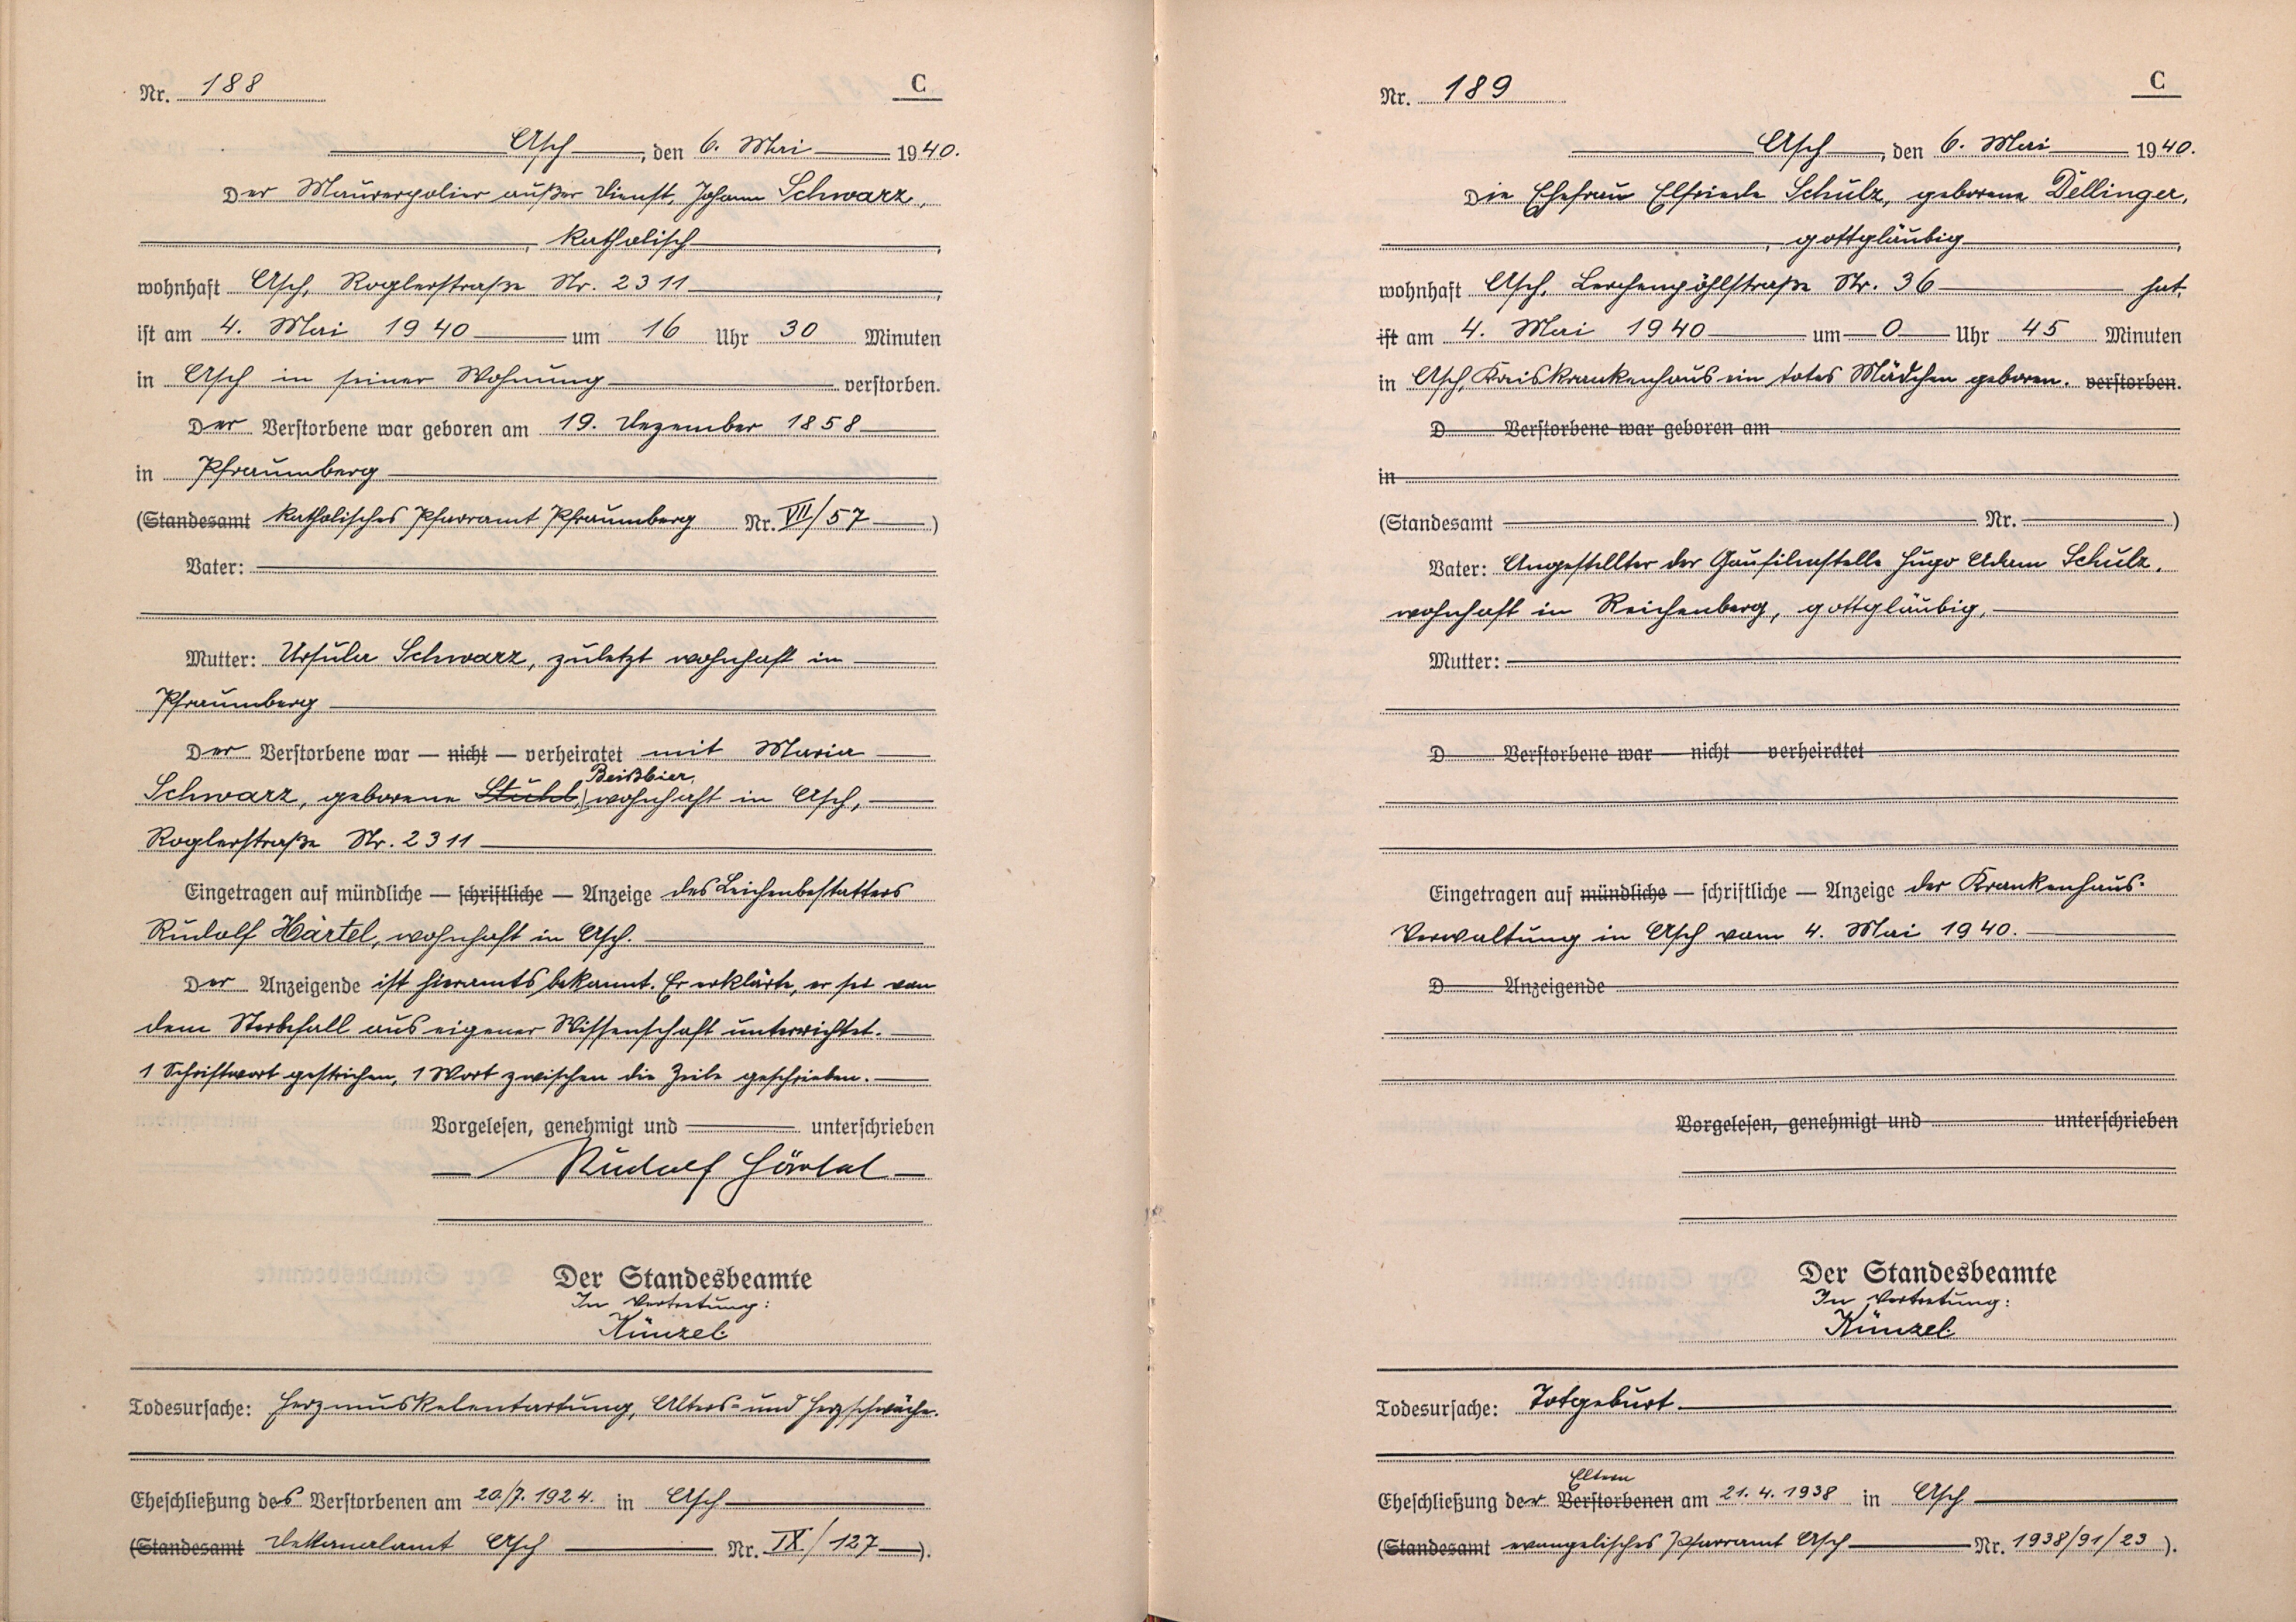 Nr. 188
C
Asch, den 6. Mai 1940.
Der Maurerpolier außer Dienst, Johann Schwarz,
, katholisch,
wohnhaft Asch, Roglerstraße Nr. 2311,
ist am 4. Mai 1940 um 16 Uhr 30 Minuten
in Asch in seiner Wohnung verstorben.
Der Verstorbene war geboren am 19. Dezember 1858
in Pfraumberg
(Standesamt katholisches Pfarramt Pfraumberg Nr. VII/57)
Vater:
Mutter: Ursula Schwarz, zuletzt wohnhaft in
Pfraumberg
Der Verstorbene war — nicht — verheiratet mit Maria
Beißbier,
Schwarz, geborene wohnhaft in Asch,
Roglerstraße Nr. 2311
Eingetragen auf mündliche — schriftliche — Anzeige des Leichenbestatters
Rudolf Härtel, wohnhaft in Asch.
Der Anzeigende ist hieramts bekannt. Er erklärte, er sei von
dem Sterbefall aus eigener Wissenschaft unterrichtet.
1 Schriftwort gestrichen, 1 Wort zwischen die Zeile geschrieben.
Vorgelesen, genehmigt und unterschrieben
Rudolf Härtel
Der Standesbeamte
In Vertretung:
Künzel.
Todesursache: Herzmuskelentartung, Alters- und Herzschwäche.
Eheschließung des Verstorbenen am 20/7. 1924. in Asch
(Standesamt Dekanalamt Asch Nr. IX/127).
Nr. 189
C
Asch, den 6. Mai 1940.
Die Ehefrau Elfriede Schulz, geborene Dellinger,
, gottgläubig,
wohnhaft Asch, Lerchenpöhlstraße Nr. 36 hat,
ist am 4. Mai 1940 um 0 Uhr 45 Minuten
in Asch, Kreiskrankenhaus ein totes Mädchen geboren. verstorben.
D Verstorbene war geboren am
in
(Standesamt Nr. )
Vater: Angestellter der Gaufilmstelle Hugo Adam Schulz,
wohnhaft in Reichenberg, gottgläubig,
Mutter:
D Verstorbene war — nicht — verheiratet
Eingetragen auf mündliche — schriftliche — Anzeige der Krankenhaus-
Verwaltung in Asch vom 4. Mai 1940.
D Anzeigende
Vorgelesen, genehmigt und unterschrieben
Der Standesbeamte
In Vertretung:
Künzel.
Todesursache: Totgeburt.
Eltern
Eheschließung der Verstorbenen am 21. 4. 1938 in Asch
(Standesamt evangelisches Pfarramt Asch Nr. 1938/91/23).